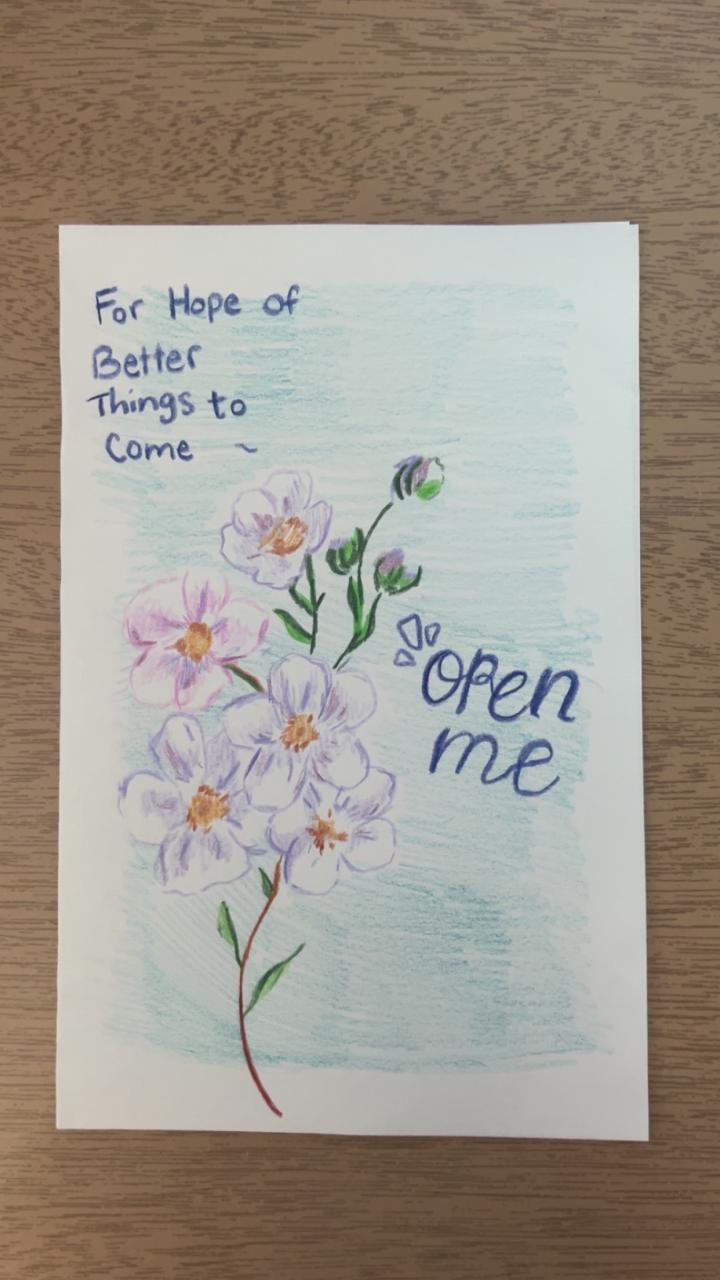 For Hope of
Better
Things to
Come ~
Open
me